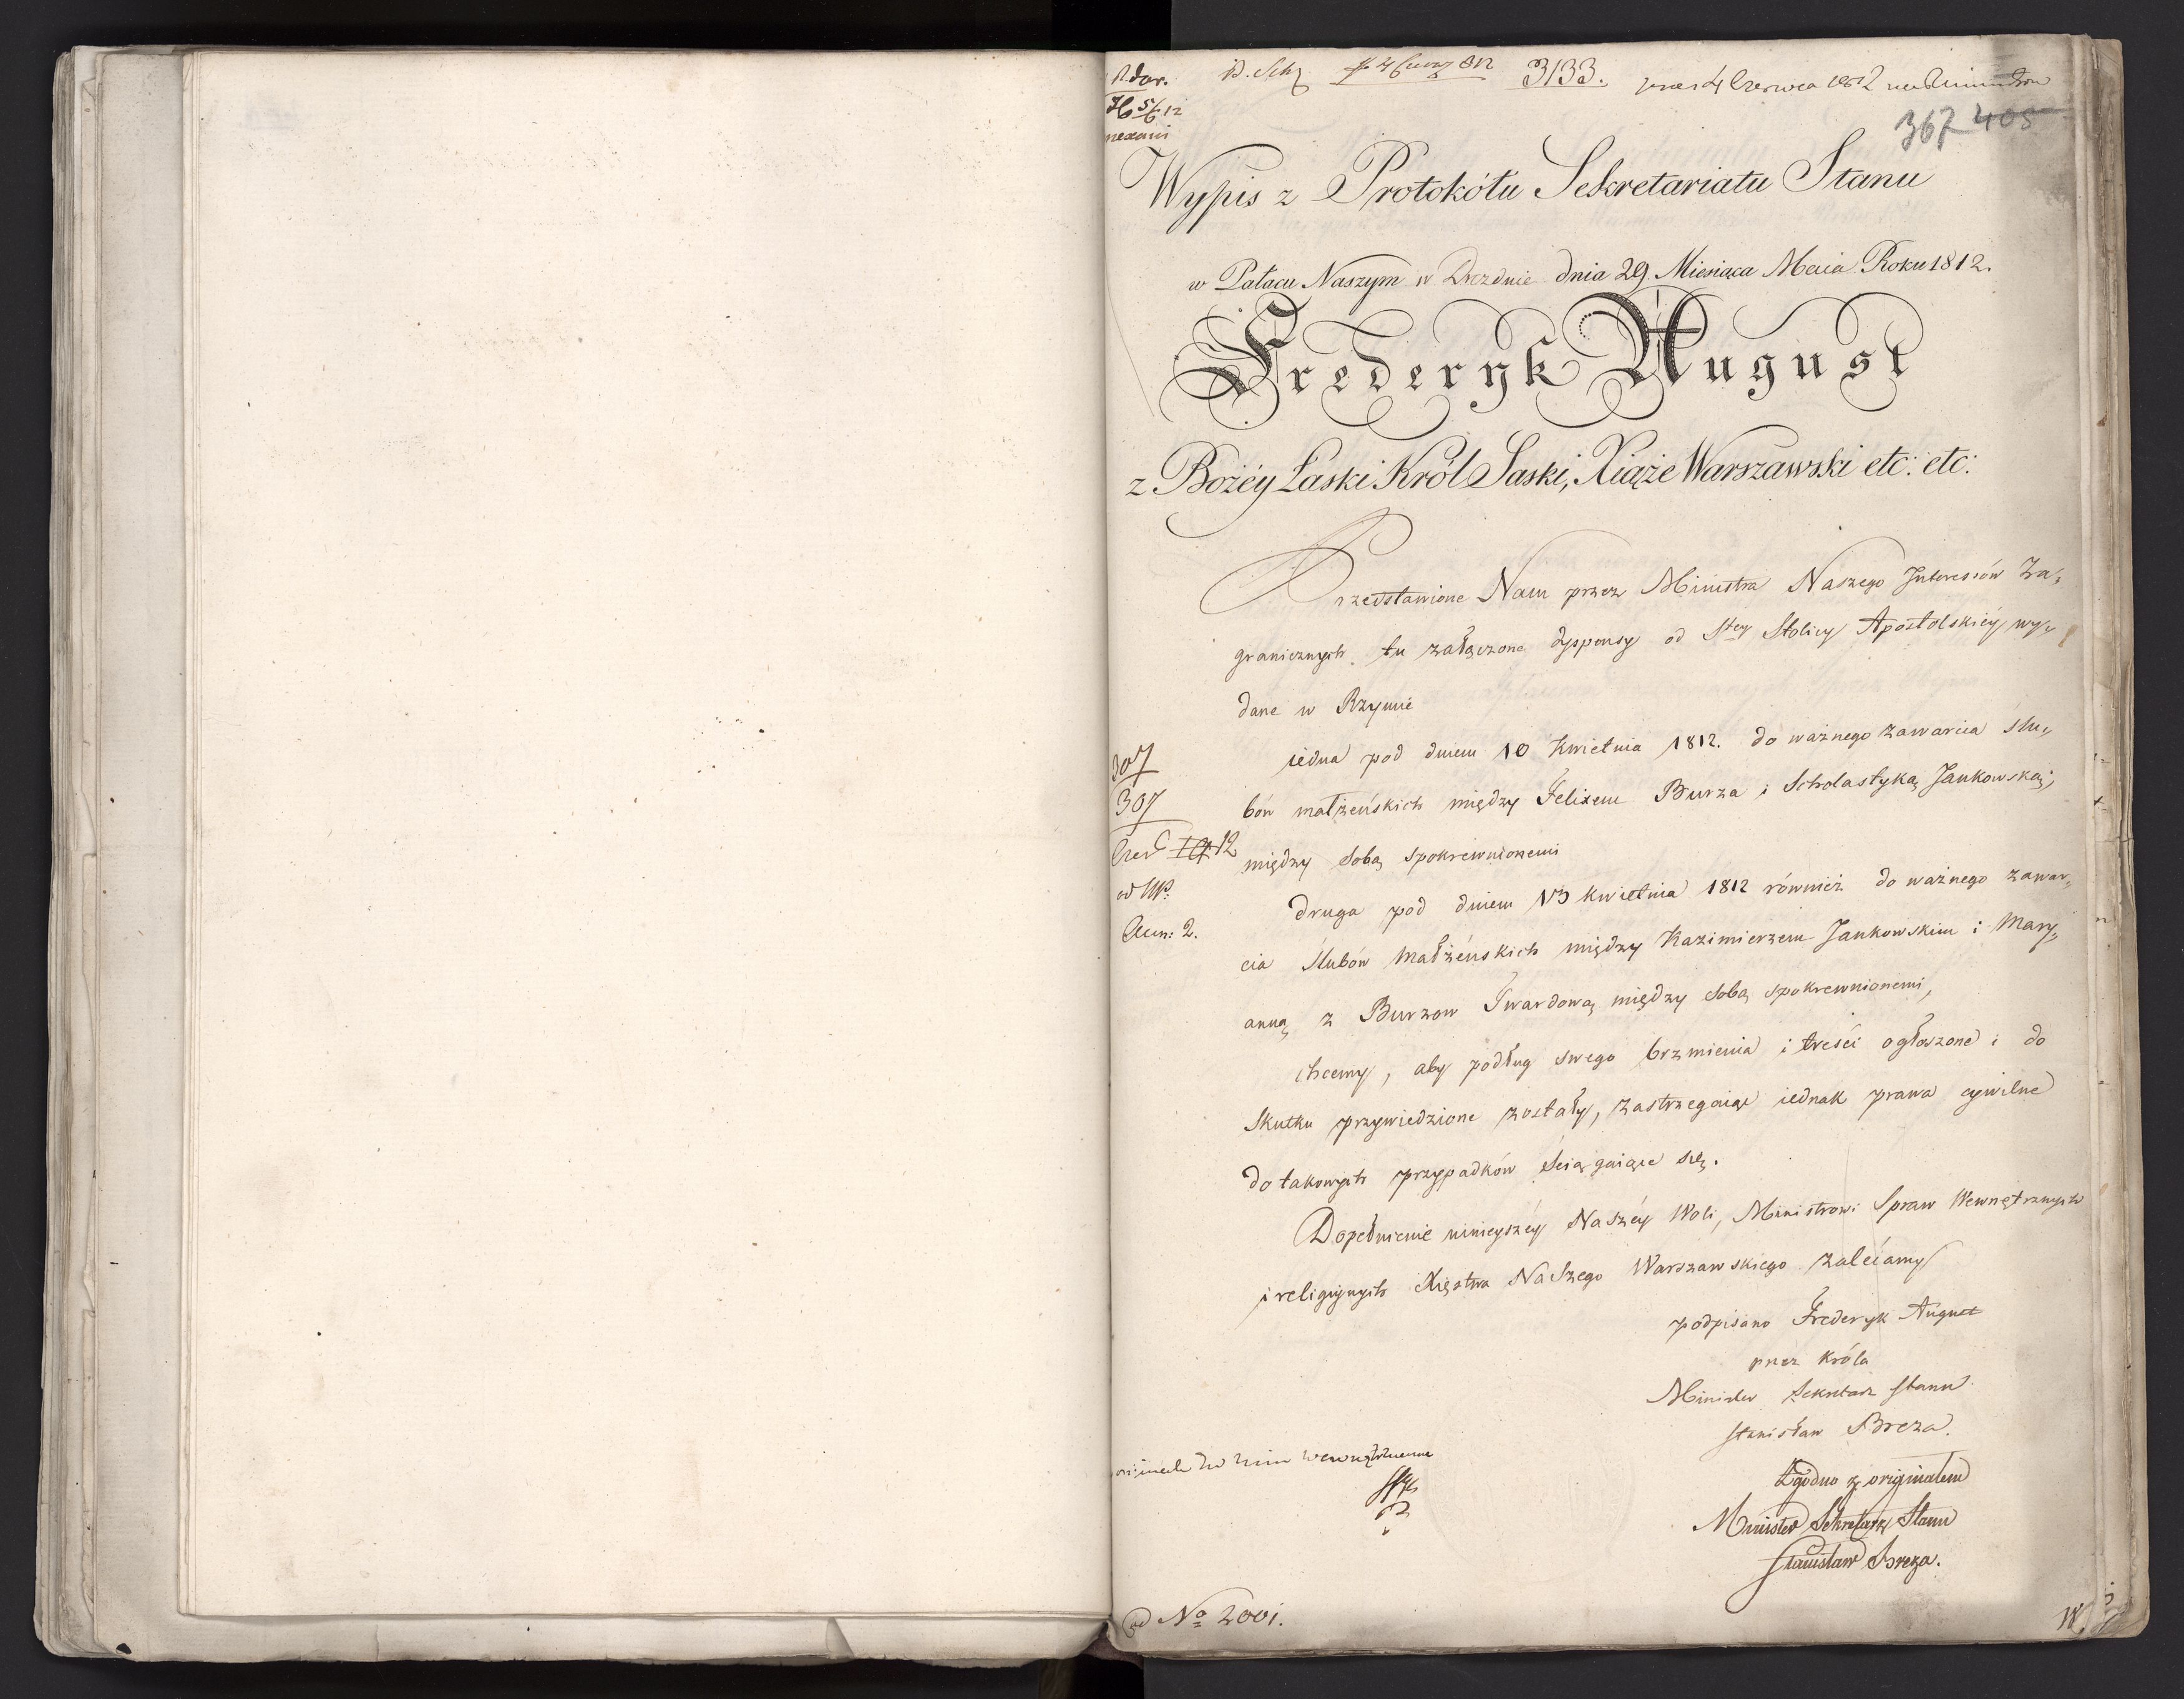 3133.
367 408
Wypis z Protokółu Sekretariatu Stanu
w Pałacu Naszym w Dreźnie dnia 29. Miesiąca Maia Roku 1812.
Frederyk August
z Bożéy Łaski Król Saski, Xiąże Warszawski etc: etc:
Przedstawione Nam przez Ministra Naszego Interessów Za„
granicznych tu załączone dyspensy od Stey Stolicy Apostolskiéy wy„
dane w Rzymie
iedna pod dniem 10 Kwietnia 1812. do ważnego zawarcia Ślu„
bów małżeńskich między Felixem Burza i Scholastyką Jankowską,
między sobą spokrewnionemi
druga pod dniem 13 kwietnia 1812 również do ważnego zawar„
cia Ślubów Małżeńskich między Kazimierzem Jankowskim i Mary„
anną z Burzow Twardową między sobą spokrewnionemi,
chcemy, aby podług swego brzmienia i treści ogłoszone i do
Skutku przywiedzione zostały, zastrzegaiąc iednak prawa cywilne
do takowych przypadków ściągaiące się.
Dopełnienie ninieyszéy Naszéy Woli, Ministrowi Spraw Wewnętrznych
i religiynych Xięstwa Naszego Warszawskiego zalecamy
podpisano Frederyk August
przez króla
Minister Sekretarz Stanu
Stanisław Breza.
Zgodno z originałem
Minister Sekretarz Stanu
Stanisław Breza.
307
307
12
Ann: 2.
ad No 2001.